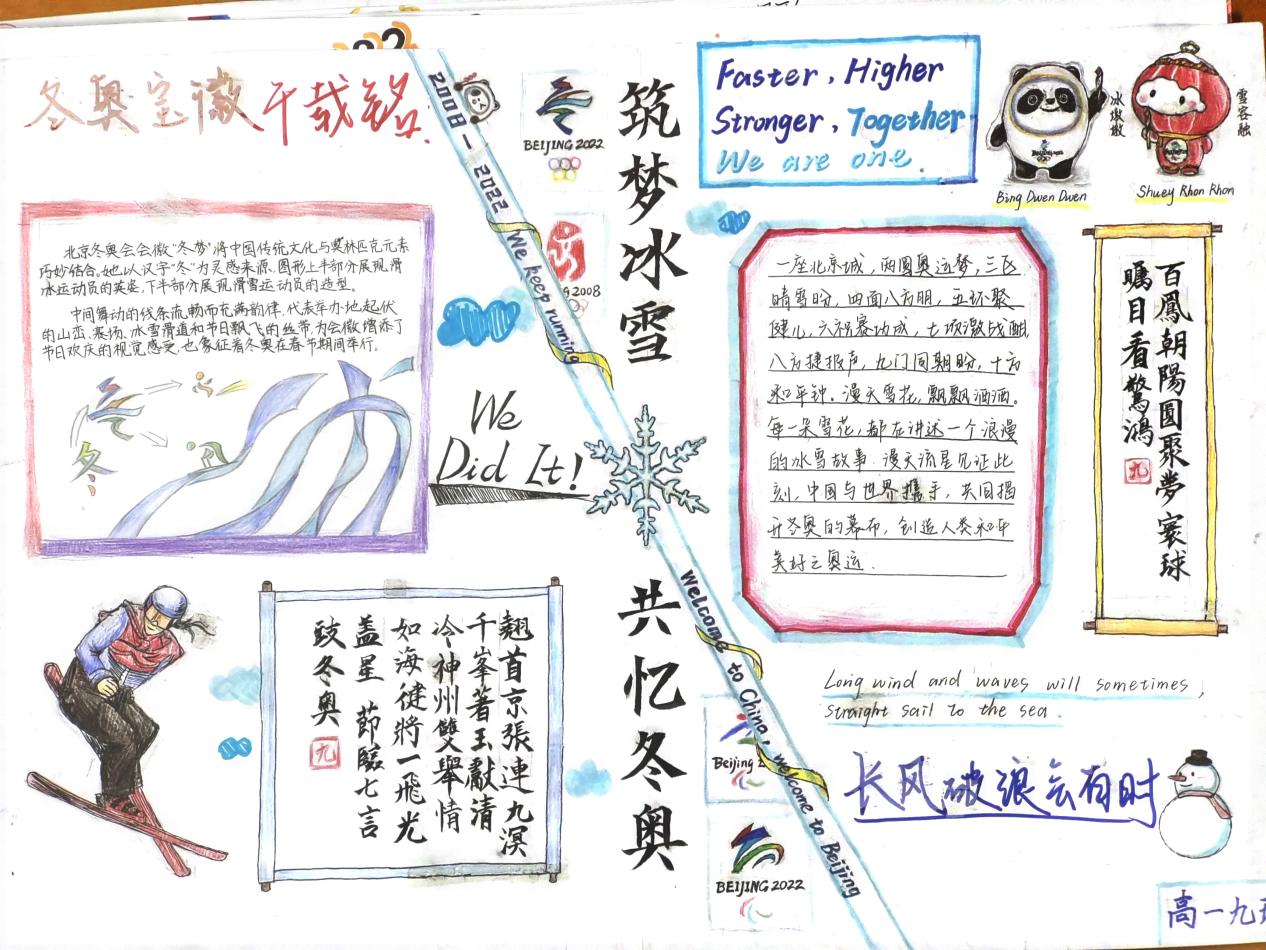 冬奥宝徽千载铭
北京冬奥会会徽“冬梦”将中国传统文化与奥林匹克元素
巧妙结合。她以汉字“冬”为灵感来源、图形上半部分展现滑
冰运动员的英姿,下半部分展现滑雪运动员的造型。
中间舞动的线条流畅而充满韵律,代表举办地起伏
的山峦、赛场、冰雪滑道和节日飘飞的丝带,为会徽增添了
节日欢庆的视觉感受,也象征着冬奥在春节期间举行。
冬
2008-2022
We keep running
BEIJING 2022
2008
We
Did It!
筑梦冰雪
共忆冬奥
翘首京張連九溟
千峯著玉獻清
冷神州雙舉情
如海健將一飛光
盖星 節臨七言
歧冬奥
九
Welcome to China, welcome to Beijing
Beijing 2
BEIJING 2022
Faster, Higher
Stronger, Together
We are one.
冰墩墩
Bing Dwen Dwen
雪容融
Shuey Rhon Rhon
一座北京城,两圆奥运梦,三区
晴雪盼,四面八方朋,五环聚
健儿,六福赛功成,七项激战酣
八方捷报声,九门同朝盼,十方
和平钟。漫天雪花,飘飘洒洒。
每一朵雪花,都在讲述一个浪漫
的冰雪故事.漫天流星见证此
刻,中国与世界携手,共同揭
开冬奥的幕布,创造人类和平
美好之奥运.
百鳳朝陽圓聚夢寰球
矚目看驚鴻
九
Long wind and waves will sometimes,
straight sail to the sea.
长风破浪会有时
高一九班